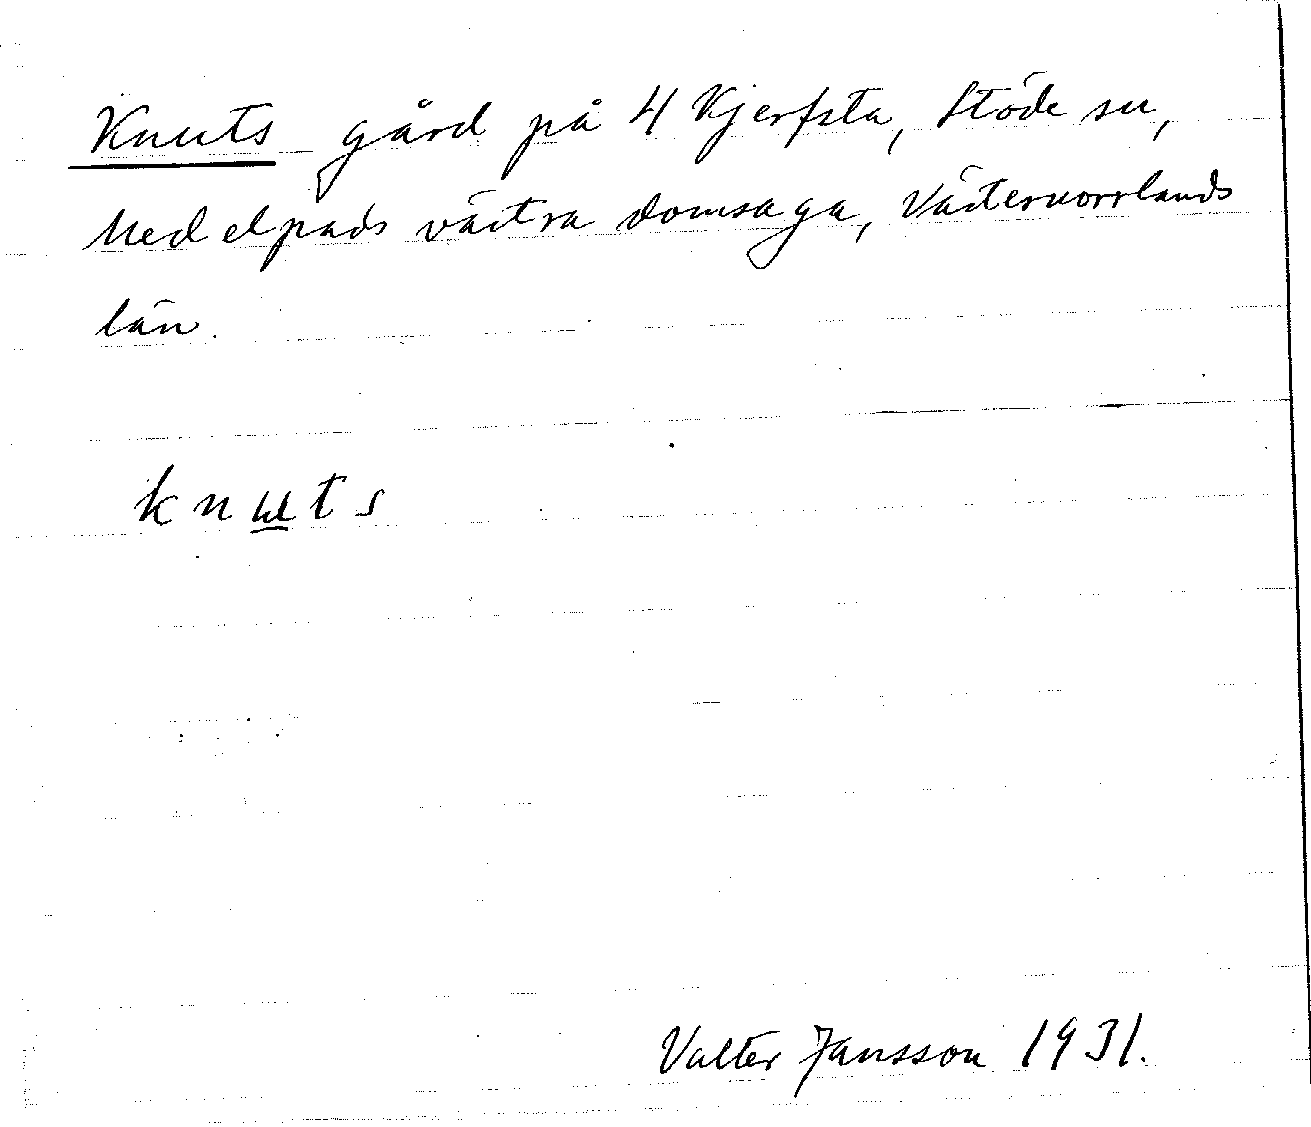 Knuts gård på 4 Kjerfsta, Stöde sn,
Medelpads västra domsaga, Västernorrlands
län.
knuts
Valter Jansson 1931.